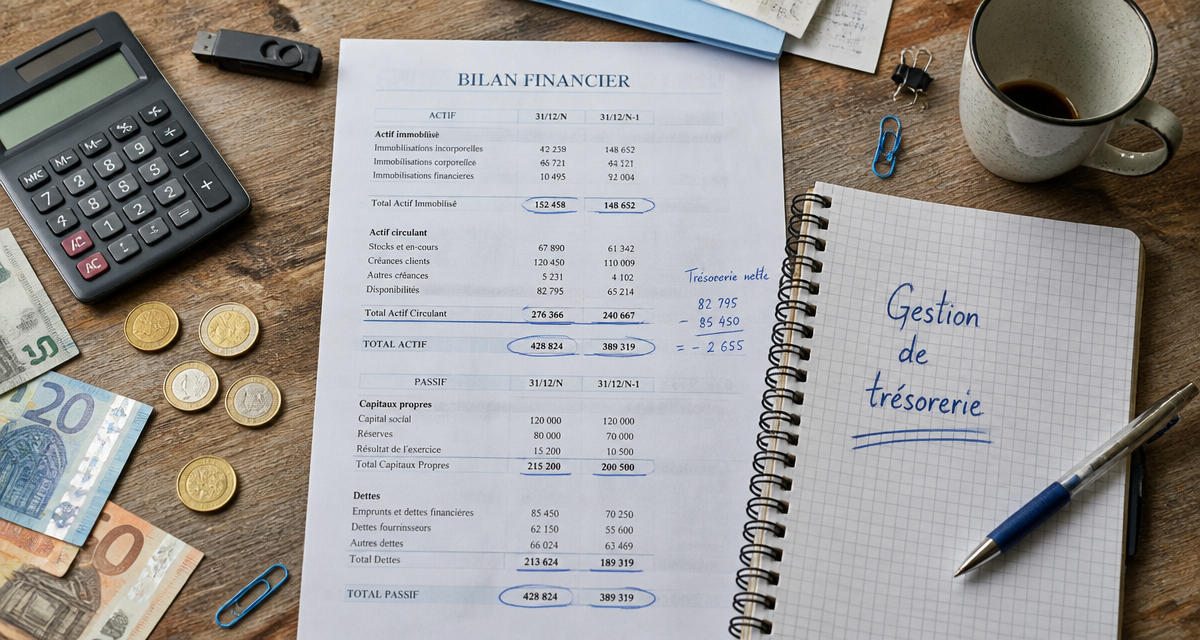 BILAN FINANCIER
ACTIF 31/12/N 31/12/N-1
Actif immobilisé
Immobilisations incorporelles 42 238 148 652
Immobilisations corporelles 721
Immobilisations financieres 10 495 92 004
Total Actif Immobilisé 152 458 148 652
Actif circulant
Stocks et en-cours 67 890 61 342
Créances clients 120 450 110 009
Autres créances 5 231 4 102
Disponibilités 82 795 65 214
Total Actif Circulant 276 366 240 667
TOTAL ACTIF 428 824 389 319
Trésorerie nette
82 795
- 85 450
= - 2 655
PASSIF 31/12/N 31/12/N-1
Capitaux propres
Capital social 120 000 120 000
Réserves 80 000 70 000
Résultat de l'exercice 15 200 10 500
Total Capitaux Propres 215 200 200 500
Dettes
Emprunts et dettes financières 85 450 70 250
Dettes fournrnsseurs 62 150 55 600
Autres dettes 66 024 63 469
Total Dettes 213 624 189 319
TOTAL PASSIF 428 824 389 319
Gestion
de
trésorerie
M- M- % +
7 8 9 -
4 8 5 +
AC 1 2 2 =
AC
5
20
50